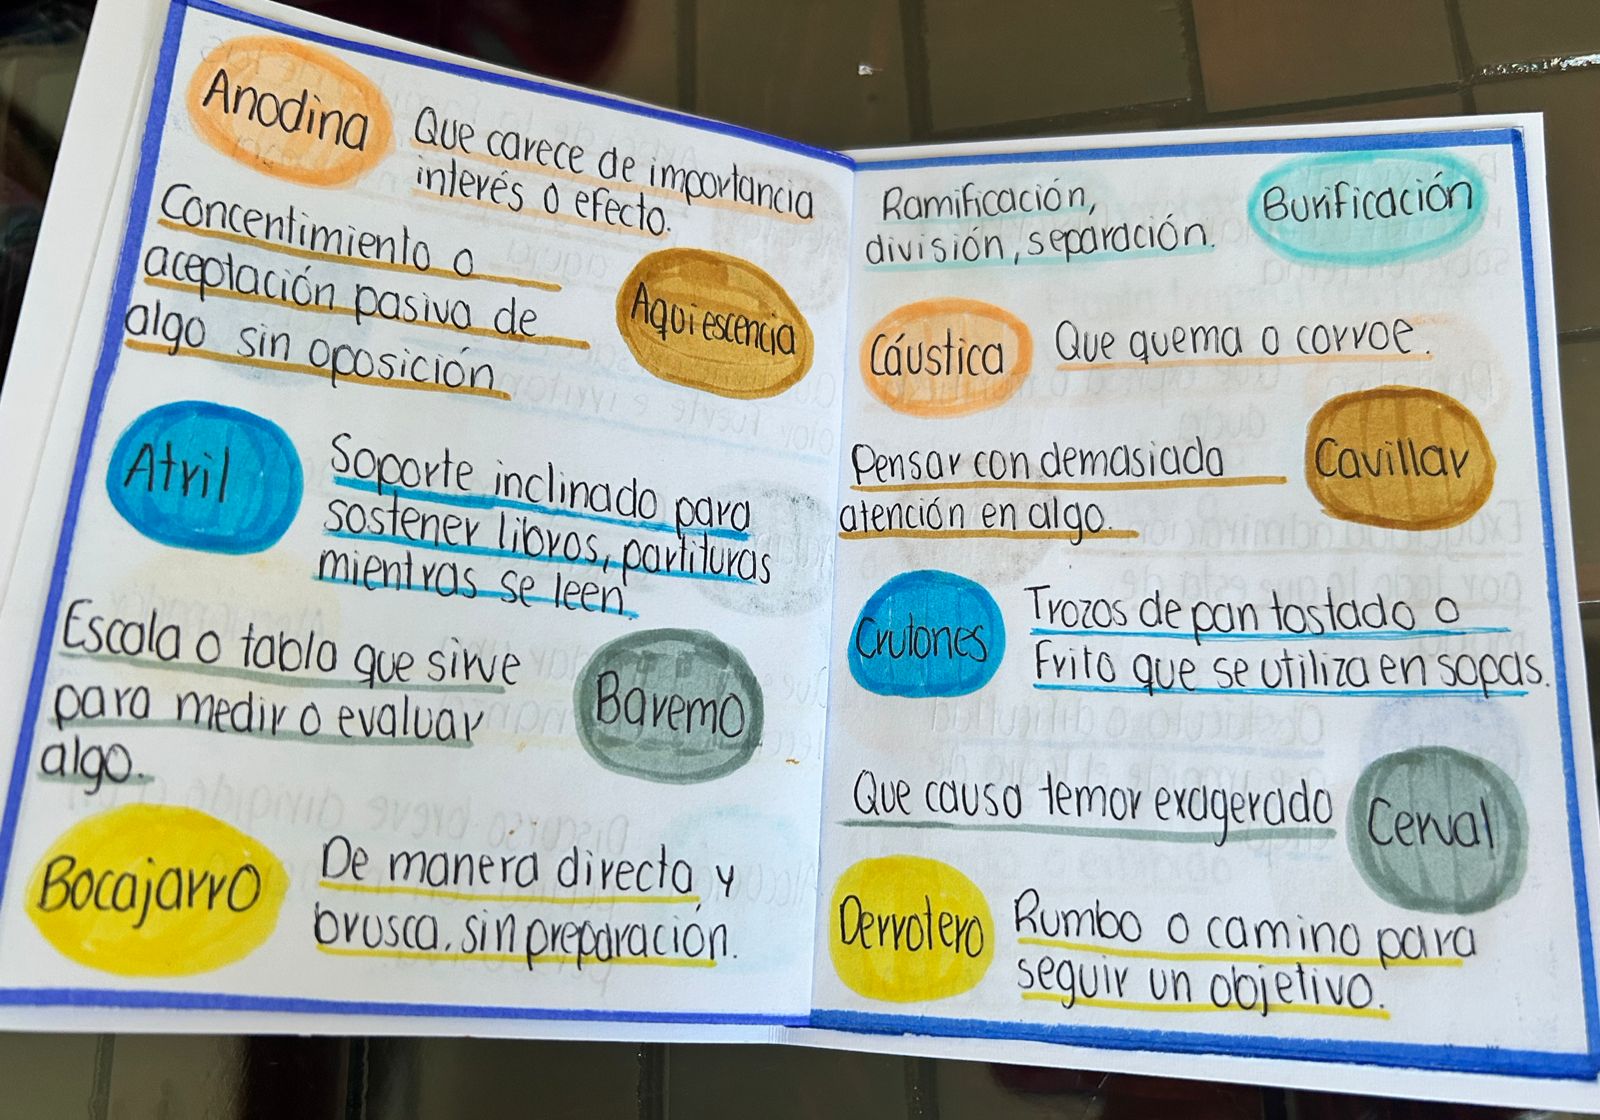 Anodina
Que carece de importancia
interés o efecto.
Concentimiento o
aceptación pasiva de
algo sin oposición
Aquiescencia
Atril
Soporte inclinado para
sostener libros, partituras
mientras se leen.
Escala o tabla que sirve
para medir o evaluar
algo.
Baremo
Bocajarro
De manera directa y
brusca, sin preparación.
Ramificación,
división, separación.
Burificación
Cáustica
Que quema o corroe.
Pensar con demasiada
atención en algo.
Cavillar
Crutones
Trozos de pan tostado o
frito que se utiliza en sopas.
Que causa temor exagerado
Cerval
Derrotero
Rumbo o camino para
seguir un objetivo.